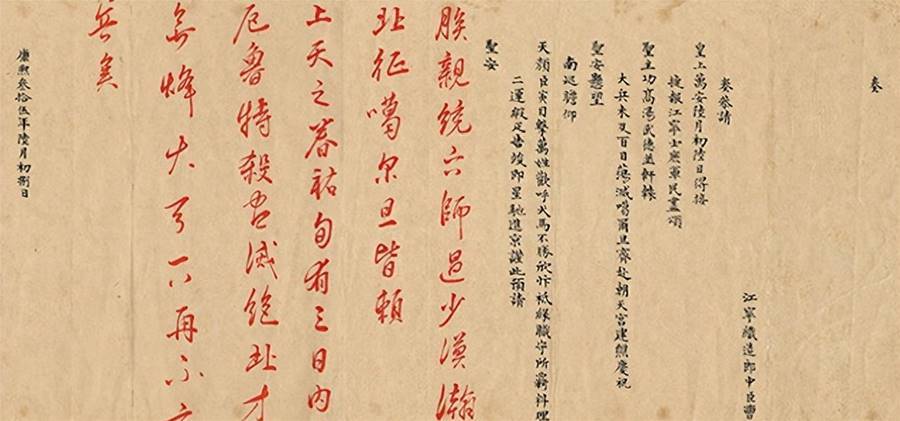 奏
江寧織造郎中臣曹
奏恭請
皇上萬安陸月初陸日得接
捷報江寧士庶軍民盡頌
聖主功高湯武德並軒轅
大兵未及百日蕩滅噶爾旦齊赴朝天宮建醮慶祝
聖安懸望
南巡瞻仰
天顏臣寅目擊萬姓歡呼犬馬不勝欣忭祗緣職守所羈料理
二運緞疋告竣即星馳進京謹此預請
聖安
朕親統六師過少漠瀚
北征噶尔旦皆賴
上天之眷祐旬有三日內
厄魯特殺 滅絕北
烽大 一 再不
兵矣
康熙叁拾伍年陸月初捌日